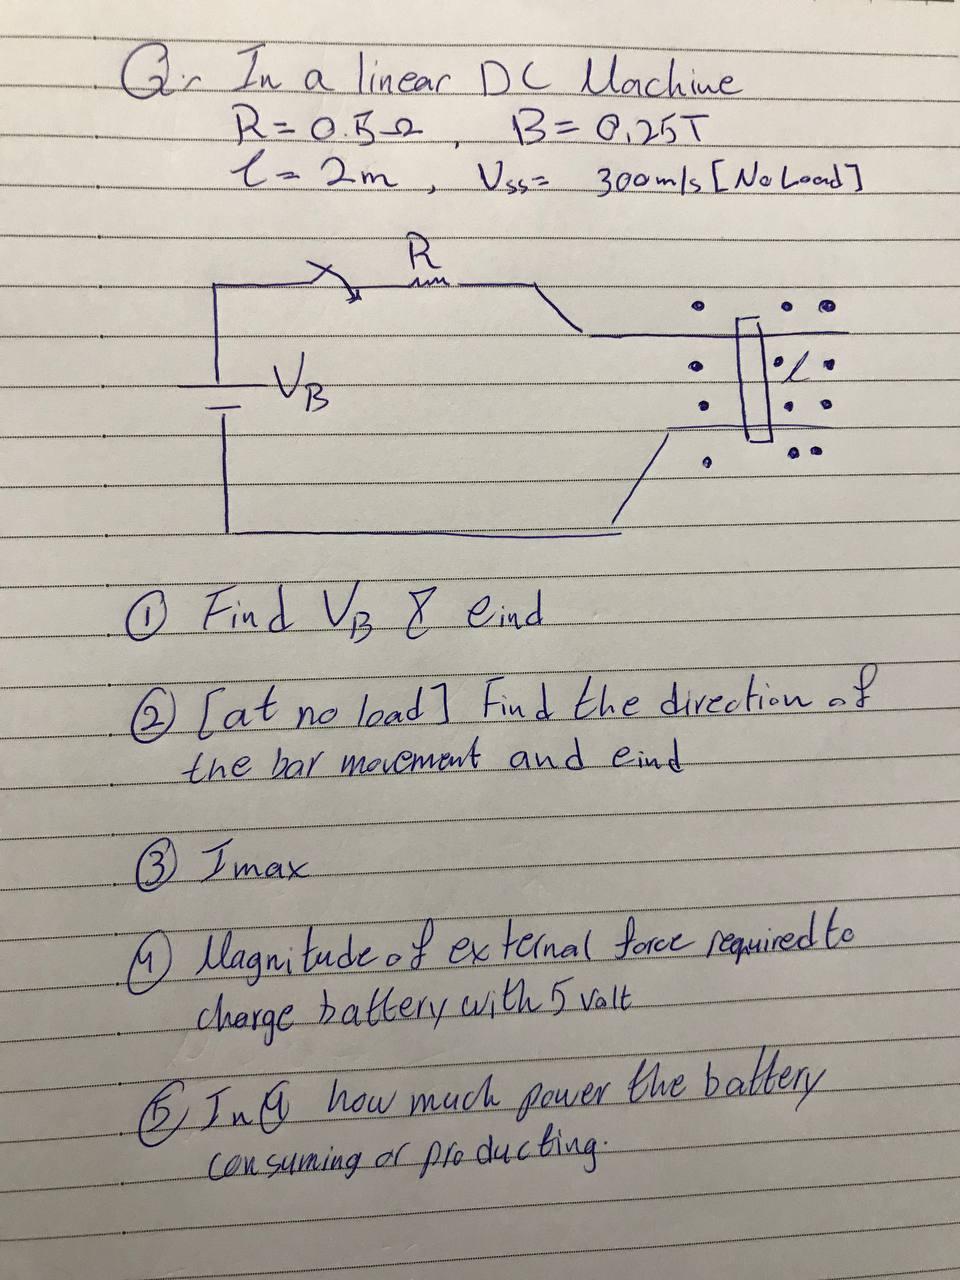 Q:- In a linear DC Machine
R = 0.5Ω , B = 0.25T
l = 2m , Vss = 300m/s [No Load]
R
VB
l
① Find VB & eind
② [at no load] Find the direction of
the bar movement and eind
③ Imax
④ Magnitude of external force required to
charge battery with 5 Volt
⑤ In ④ how much power the battery
consuming or producting.